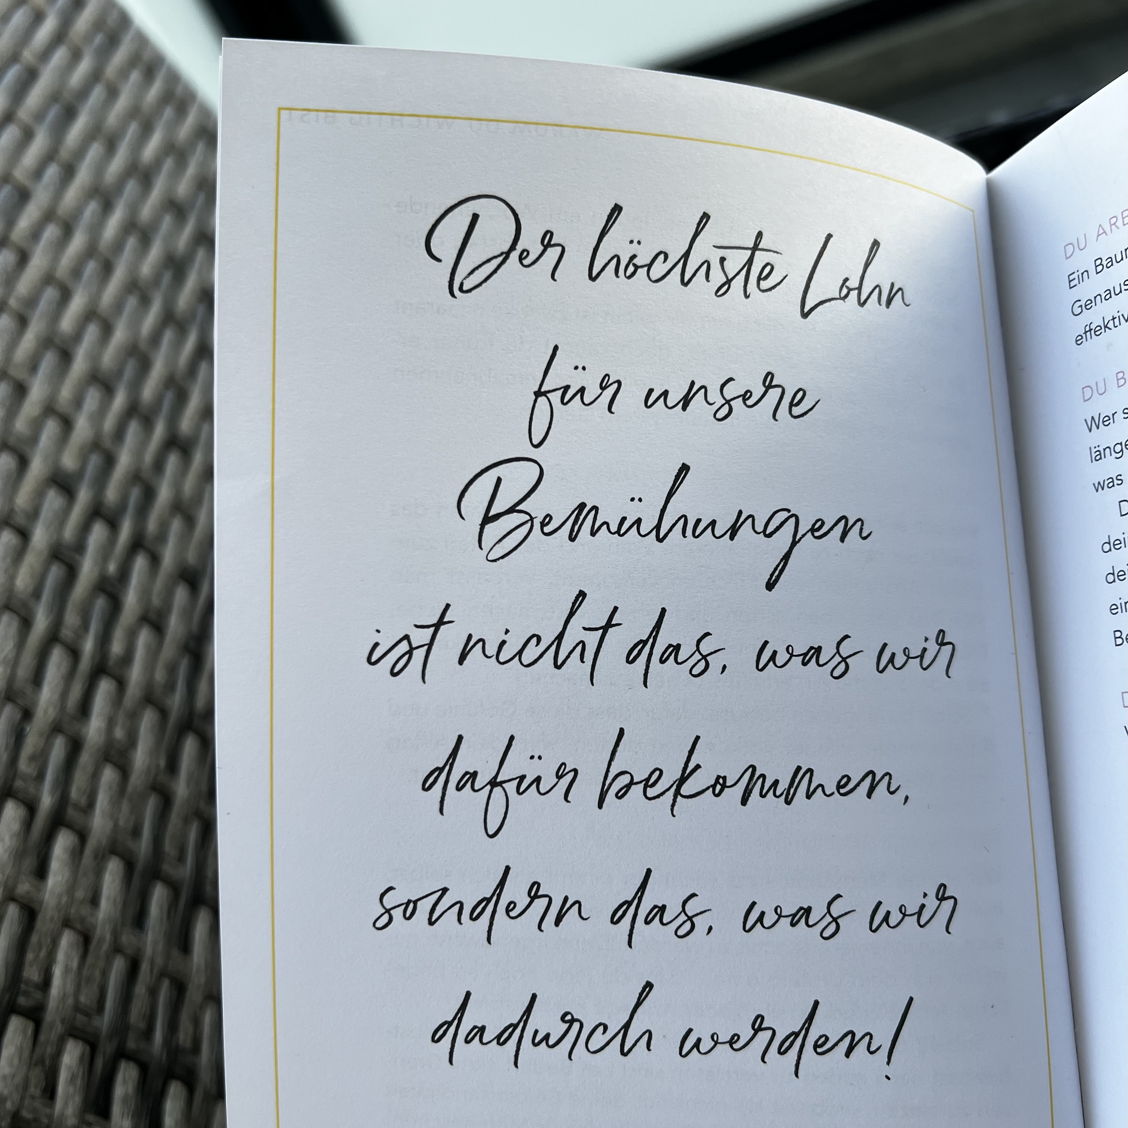 Der höchste Lohn
für unsere
Bemühungen
ist nicht das, was wir
dafür bekommen,
sondern das, was wir
dadurch werden!
DU ARB
Ein Baum
Genaus
effektiv
DU B
Wer s
länge
was
D
dein
dei
ein
Be